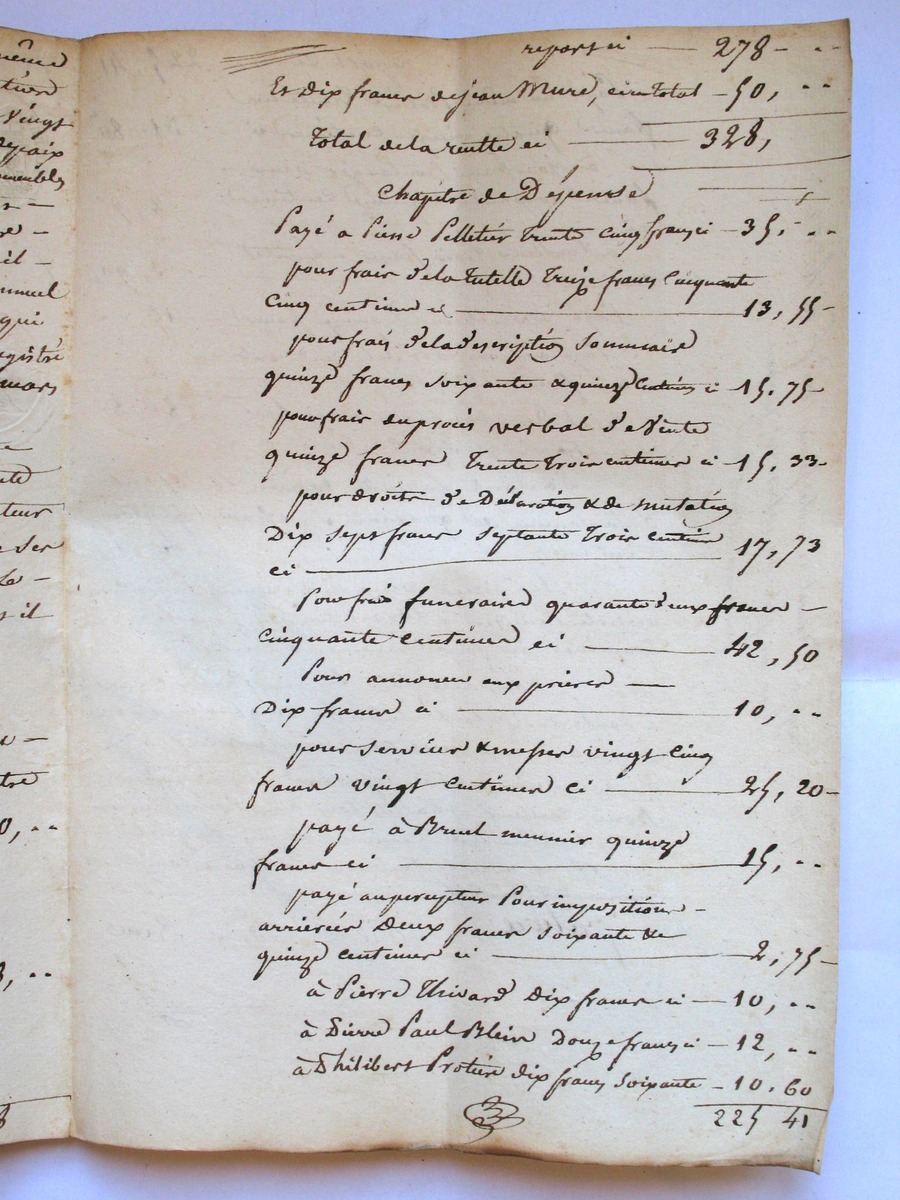 même
Vingt
il -
qui
mars
il
report ci — 278 - ..
Et Dix francs de jean Mure, ci en total - 50, ..
Total de la recette ci — 328,
Chapitre de Dépense
Payé a Pierre Pelletier trente cinq francs ci - 35, ..
pour frais de la tutelle treize francs cinquante
cinq centimes ci — 13, 55 -
pour frais de la description sommaire
quinze francs soixante & quinze centimes ci - 15. 75 -
pour frais du procès verbal de Vente
quinze francs trente trois centimes ci - 15, 33 -
pour droits de Déclaration & de mutation
Dix sept francs septante trois centimes 17, 73
ci —
Pour frais funeraires quarante deux francs —
cinquante centimes ci — 42, 50
Pour annonce aux prieres —
Dix francs ci — 10, ..
pour services & messes vingt cinq
francs vingt centimes ci — 25, 20 -
payé à Breul meunier quinze
francs ci — 15, ..
payé au percepteur Pour impositions -
arriérées deux francs soixante &
quinze centimes ci — 2, 75 -
à Pierre Thivard Dix francs ci — 10, ..
à Pierre Paul Blein Douze francs ci - 12, ..
à Philibert Protière dix francs soixante - 10. 60
225 41